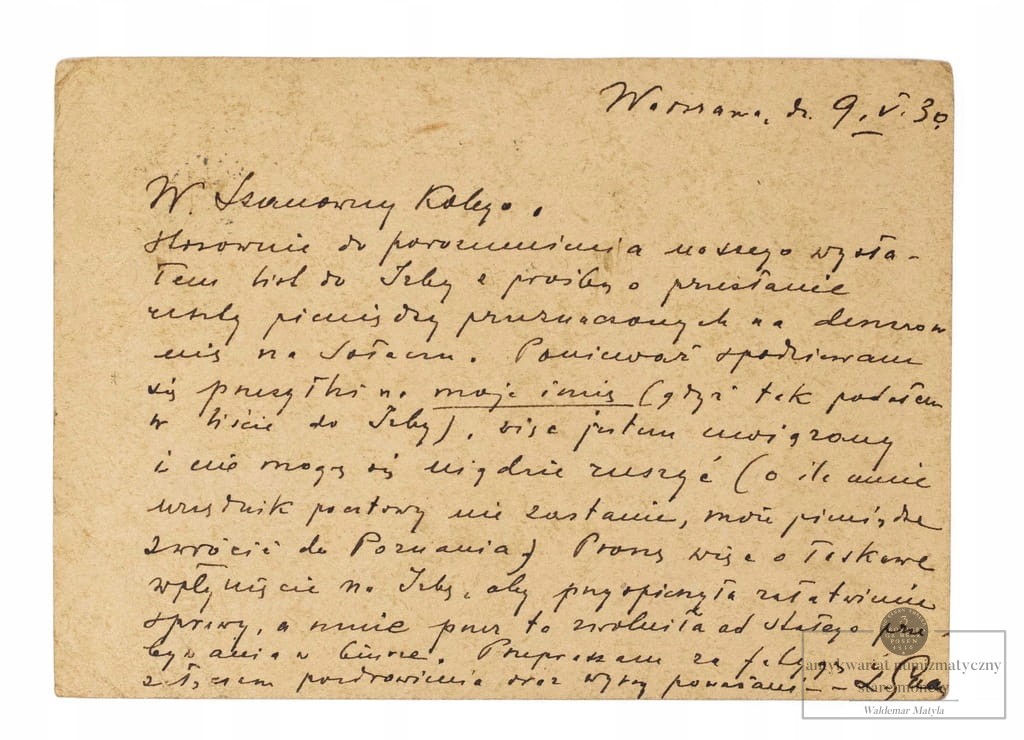 Warszawa, dn. 9.V.30.
W. Szanowny Kolego.
Stosownie do porozumienia naszego wysła-
łem list do Izby z prośbą o przesłanie
reszty pieniędzy przeznaczonych na
na Sołaczu. Ponieważ spodziewam
się przesyłki na moje imię (gdyż tak podałem
w liście do Izby), więc jestem uwiązany
i nie mogę się nigdzie ruszyć (o ile mnie
urzędnik pocztowy nie zastanie, może pieniądze
zwrócić do Poznania) Proszę więc o łaskawe
wpłynięcie na Izbę, aby przyspieszyła załatwienie
sprawy, a mnie przez to zwolniła od stałego prze-
bywania w biurze. Przepraszam za fatygę
z pozdrowienia oraz wyrazy
antykwariat numizmatyczny
stare monety
Waldemar Matyla